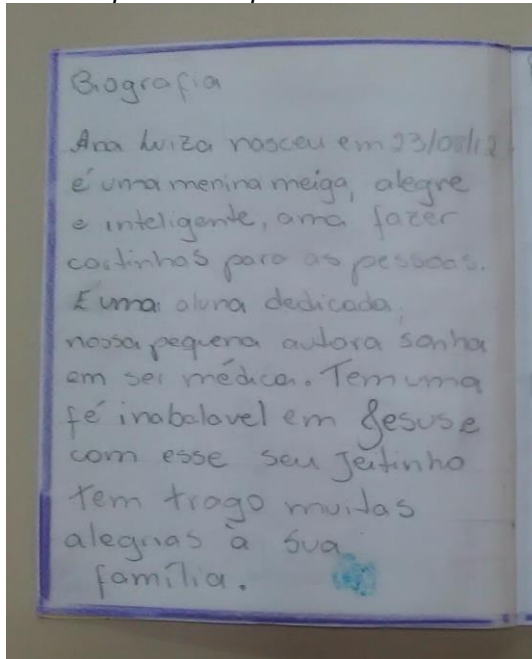 Biografia
Ana Luiza nasceu em 23/08/12
é uma menina meiga, alegre
e inteligente, ama fazer
cartinhas para as pessoas.
E uma aluna dedicada,
nossa pequena autora sonha
em ser médica. Tem uma
fé inabalavel em Jesus e
com esse seu Jeitinho
tem trago muitas
alegrias à sua
família.